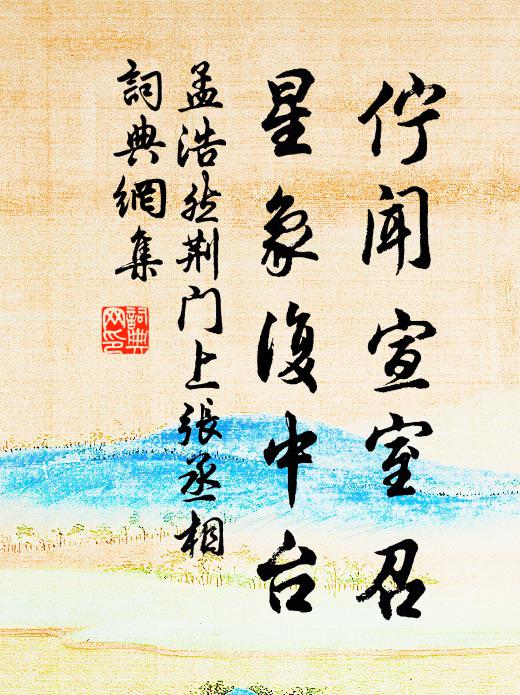 佇聞宣室召
星象復中台
孟浩然荆门上張丞相
詞典網集
詞典
网印